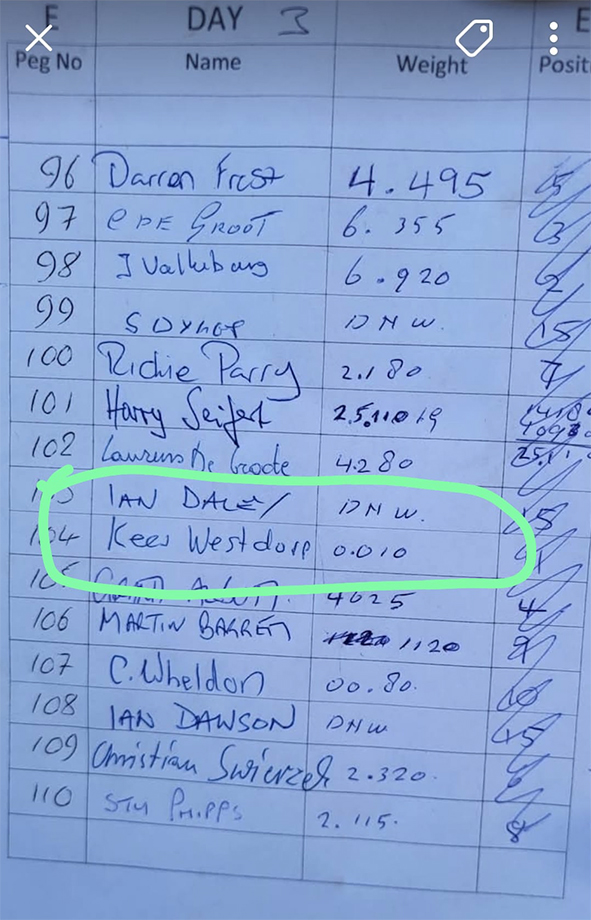 E DAY 3 E
Peg No Name Weight Positi
96 Darren Frost 4.495 5
97 C DE GROOT 6.355 3
98 J Valkuburg 6.920 2
99 DNW. 15
100 Richie Parry 2.180 7
101 Harry Seifert
102 Laurens De Groote 4.280
103 IAN DALEY DNW. 15
104 Kees Westdorp 0.010
105 4625 4
106 MARTIN BARRETT 1120 9
107 C. Wheldon 00.80. 10
108 IAN DAWSON DNW 15
109 Christian 2.320.
110 STU PHIPPS 2.115. 8